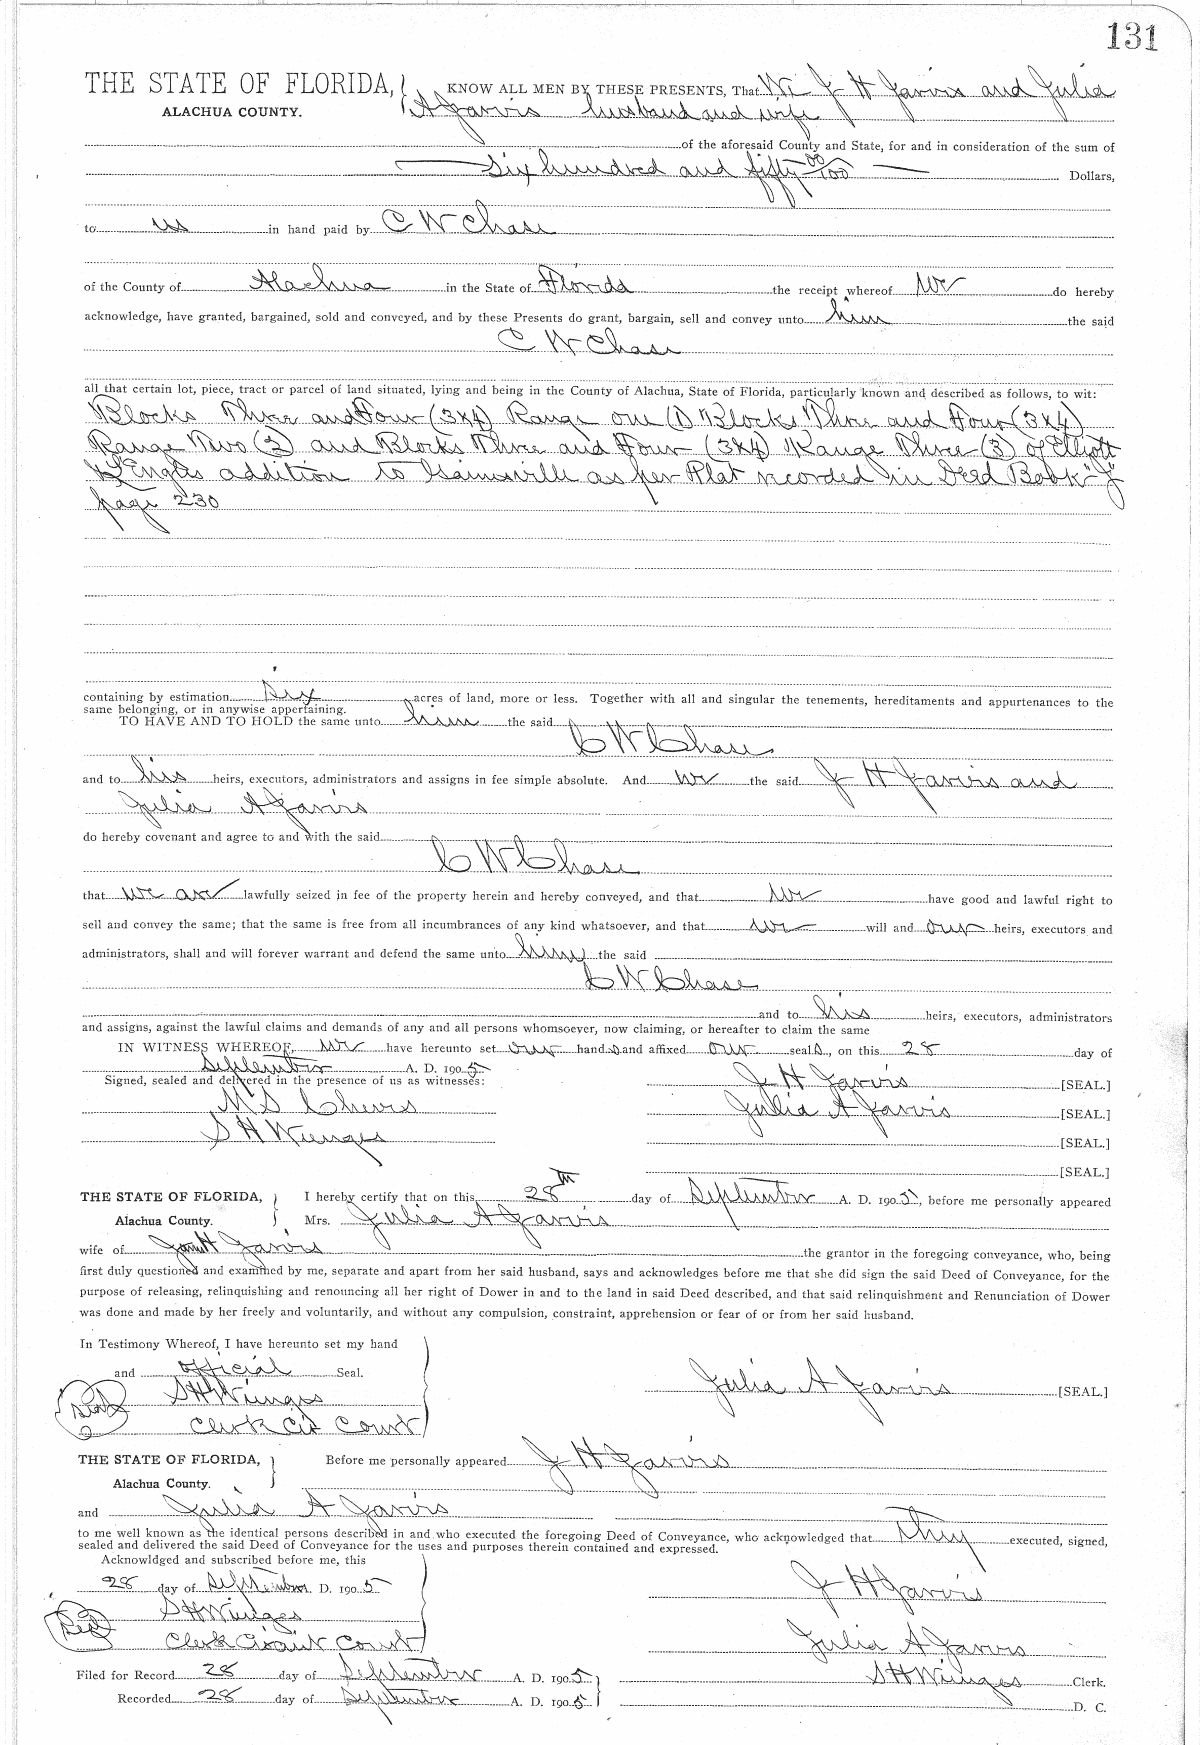 131
THE STATE OF FLORIDA, KNOW ALL MEN BY THESE PRESENTS, That We J H Jarvis and Julia
ALACHUA COUNTY. A Jarvis husband and wife
of the aforesaid County and State, for and in consideration of the sum of
Six hundred and fifty 00/100 Dollars,
to us in hand paid by C W Chase
of the County of Alachua in the State of Florida the receipt whereof we do hereby
acknowledge, have granted, bargained, sold and conveyed, and by these Presents do grant, bargain, sell and convey unto him the said
C W Chase
all that certain lot, piece, tract or parcel of land situated, lying and being in the County of Alachua, State of Florida, particularly known and described as follows, to wit:
Blocks Three and Four (3x4) Range one (1) Blocks Three and Four (3x4)
Range Two (2) and Blocks Three and Four (3x4) Range Three (3) of Elliott
addition to Gainesville as per Plat recorded in Deed Book "J"
page 230
containing by estimation Six acres of land, more or less. Together with all and singular the tenements, hereditaments and appurtenances to the
same belonging, or in anywise appertaining.
TO HAVE AND TO HOLD the same unto him the said
C W Chase
and to his heirs, executors, administrators and assigns in fee simple absolute. And we the said J H Jarvis and
Julia A Jarvis
do hereby covenant and agree to and with the said
C W Chase
that we are lawfully seized in fee of the property herein and hereby conveyed, and that we have good and lawful right to
sell and convey the same; that the same is free from all incumbrances of any kind whatsoever, and that we will and our heirs, executors and
administrators, shall and will forever warrant and defend the same unto him the said
C W Chase
and to his heirs, executors, administrators
and assigns, against the lawful claims and demands of any and all persons whomsoever, now claiming, or hereafter to claim the same
IN WITNESS WHEREOF, we have hereunto set our hands and affixed our seals, on this 28 day of
September A. D. 1905
Signed, sealed and delivered in the presence of us as witnesses: J H Jarvis [SEAL.]
M S Cheves Julia A Jarvis [SEAL.]
S H Wienges [SEAL.]
[SEAL.]
THE STATE OF FLORIDA, I hereby certify that on this 28th day of September A. D. 1905, before me personally appeared
Alachua County. Mrs. Julia A Jarvis
wife of H Jarvis the grantor in the foregoing conveyance, who, being
first duly questioned and examined by me, separate and apart from her said husband, says and acknowledges before me that she did sign the said Deed of Conveyance, for the
purpose of releasing, relinquishing and renouncing all her right of Dower in and to the land in said Deed described, and that said relinquishment and Renunciation of Dower
was done and made by her freely and voluntarily, and without any compulsion, constraint, apprehension or fear of or from her said husband.
In Testimony Whereof, I have hereunto set my hand
and official Seal.
S H Wienges Julia A Jarvis [SEAL.]
Seal Clerk Cir Court
THE STATE OF FLORIDA, Before me personally appeared J H Jarvis
Alachua County.
and Julia A Jarvis
to me well known as the identical persons described in and who executed the foregoing Deed of Conveyance, who acknowledged that they executed, signed,
sealed and delivered the said Deed of Conveyance for the uses and purposes therein contained and expressed.
Acknowldged and subscribed before me, this
28 day of September A. D. 1905 J H Jarvis
Seal S H Wienges
Clerk Circuit Court Julia A Jarvis
Filed for Record 28 day of September A. D. 1905 S H Wienges Clerk.
Recorded 28 day of September A. D. 1905 D. C.